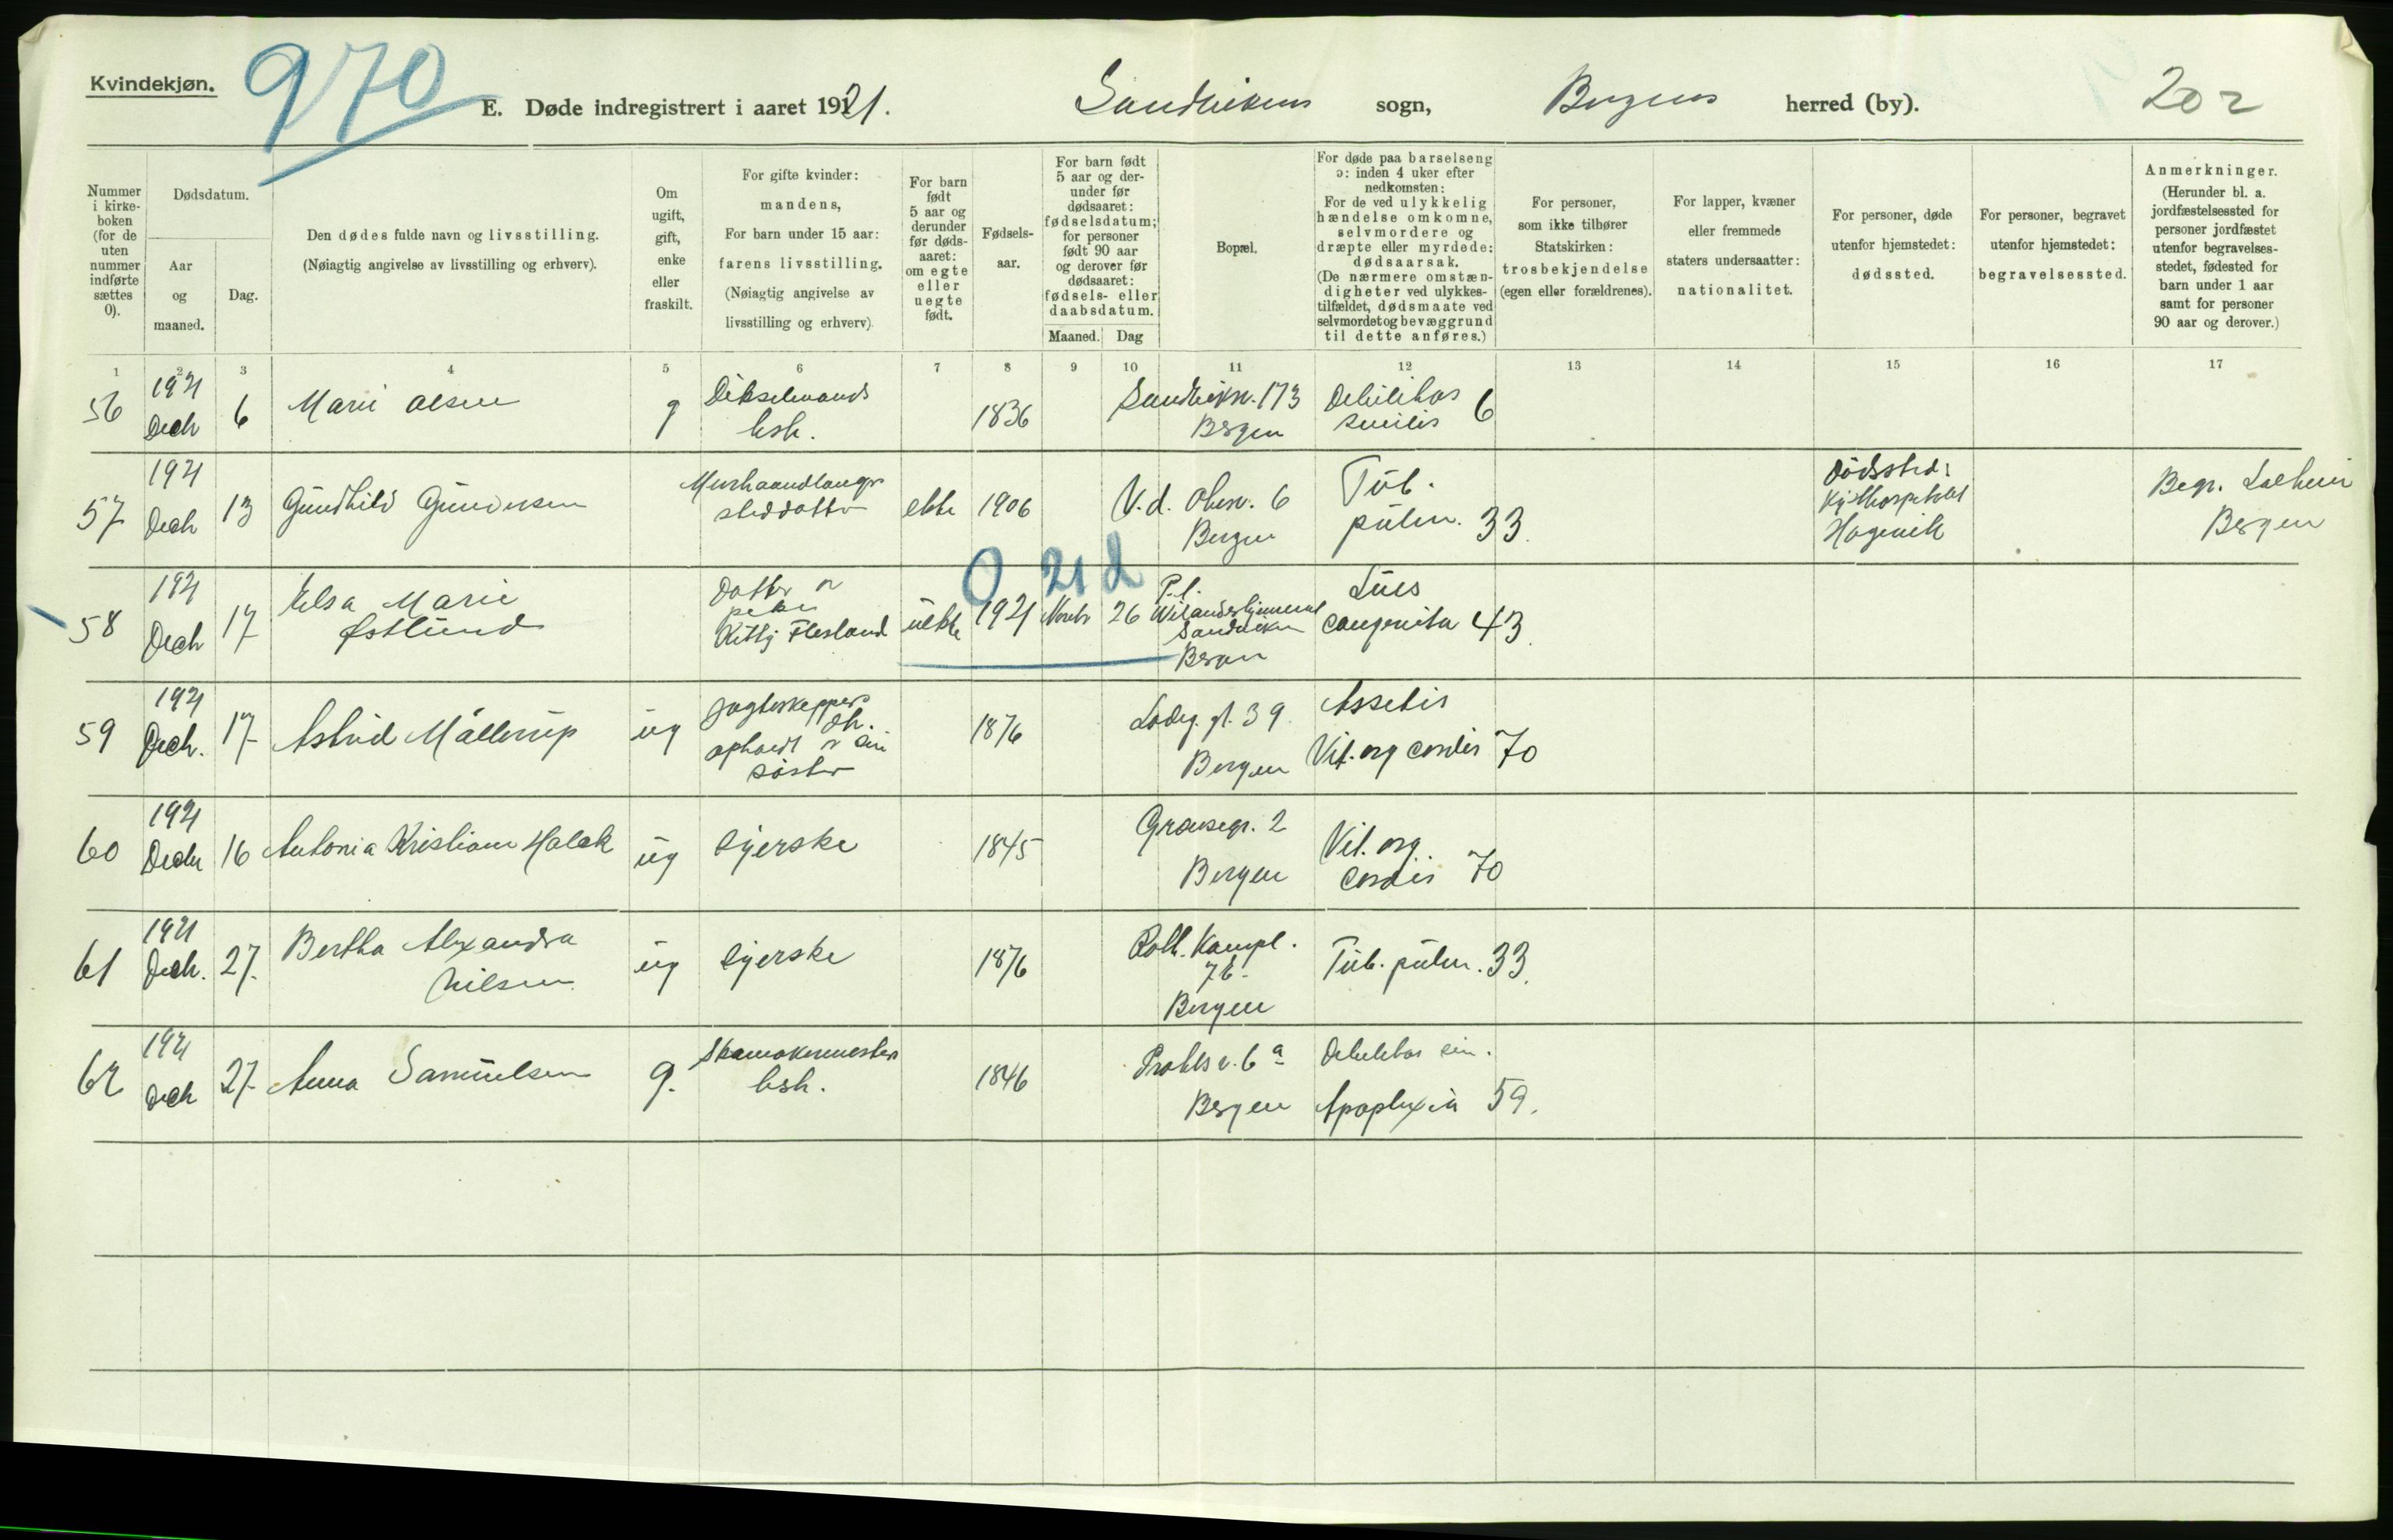 Kvindekjøn.
970
E. Døde indregistrert i aaret 1921.
Sandvikens sogn,
Bergens herred (by).
202
Nummer i kirkeboken (for de uten nummer indførte sættes 0).
Dødsdatum.
Aar og maaned.
Dag.
Den dødes fulde navn og livsstilling.
(Nøiagtig angivelse av livsstilling og erhverv).
Om ugift, gift, enke eller fraskilt.
For gifte kvinder: mandens,
For barn under 15 aar: farens livsstilling.
(Nøiagtig angivelse av livsstilling og erhverv)
For barn født 5 aar og derunder før dødsaaret: om egte eller uegte født.
Fødselsaar.
For barn født 5 aar og derunder før dødsaaret: fødselsdatum; for personer født 90 aar og derover før dødsaaret: fødsels- eller daabsdatum.
Maaned. Dag
Bopæl.
For døde paa barselseng ɔ: inden 4 uker efter nedkomsten:
For de ved ulykkelig hændelse omkomne, selvmordere og dræpte eller myrdede: dødsaarsak.
(De nærmere omstændigheter ved ulykkestilfældet, dødsmaate ved selvmordet og bevæggrund til dette anføres.)
For personer, som ikke tilhører Statskirken: trosbekjendelse (egen eller forældrenes).
For lapper, kvæner eller fremmede staters undersaatter: nationalitet.
For personer, døde utenfor hjemstedet: dødssted.
For personer, begravet utenfor hjemstedet: begravelsessted.
Anmerkninger.
(Herunder bl. a. jordfæstelsessted for personer jordfæstet utenfor begravelsesstedet, fødested for barn under 1 aar samt for personer 90 aar og derover.)
1 2 3 4 5 6 7 8 9 10 11 12 13 14 15 16 17
56 1921 Decb 6 Marie Olsen g hsh. 1836 Sandviksv. 173 Bergen Debilitas senilis 6
57 1921 Decb 13 Gundhild Gundersen Murhaandlanger steddatter ekte 1906 V.d. Ohsv. 6 Bergen Tub. pulm. 33. Dödssted: Kysthospitalet Hagevik Begr. Solheim Bergen
0 21 d
58 1921 Decb 17 Elsa Marie Østlund Datter av pike Kitty Flesland uekte 1921 Novb 26 P.t. Wilandshjemmet Sandviken Bergen Lues congenita 43.
59 1921 Decb. 17 Astrid Møllerup ug Jagteskippers dtr. ophold av sin søster 1876 Ladeg. gt. 39. Bergen Vit. org cordis 70
60 1921 Decbr 16 Antonia Kristiane Holck ug syerske 1845 Bergen Vit. org. cordis 70
61 1921 Decb. 27. Bertha Alexandra Nilsen ug syerske 1876 Roth. Kampl. 7b. Bergen Tub. pulm. 33.
62 1921 Decb 27. Anna Samuelsen g. Skomakermester hsh. 1846 Prahls v. 6a Bergen Debilitas sen. Apoplexia 59.